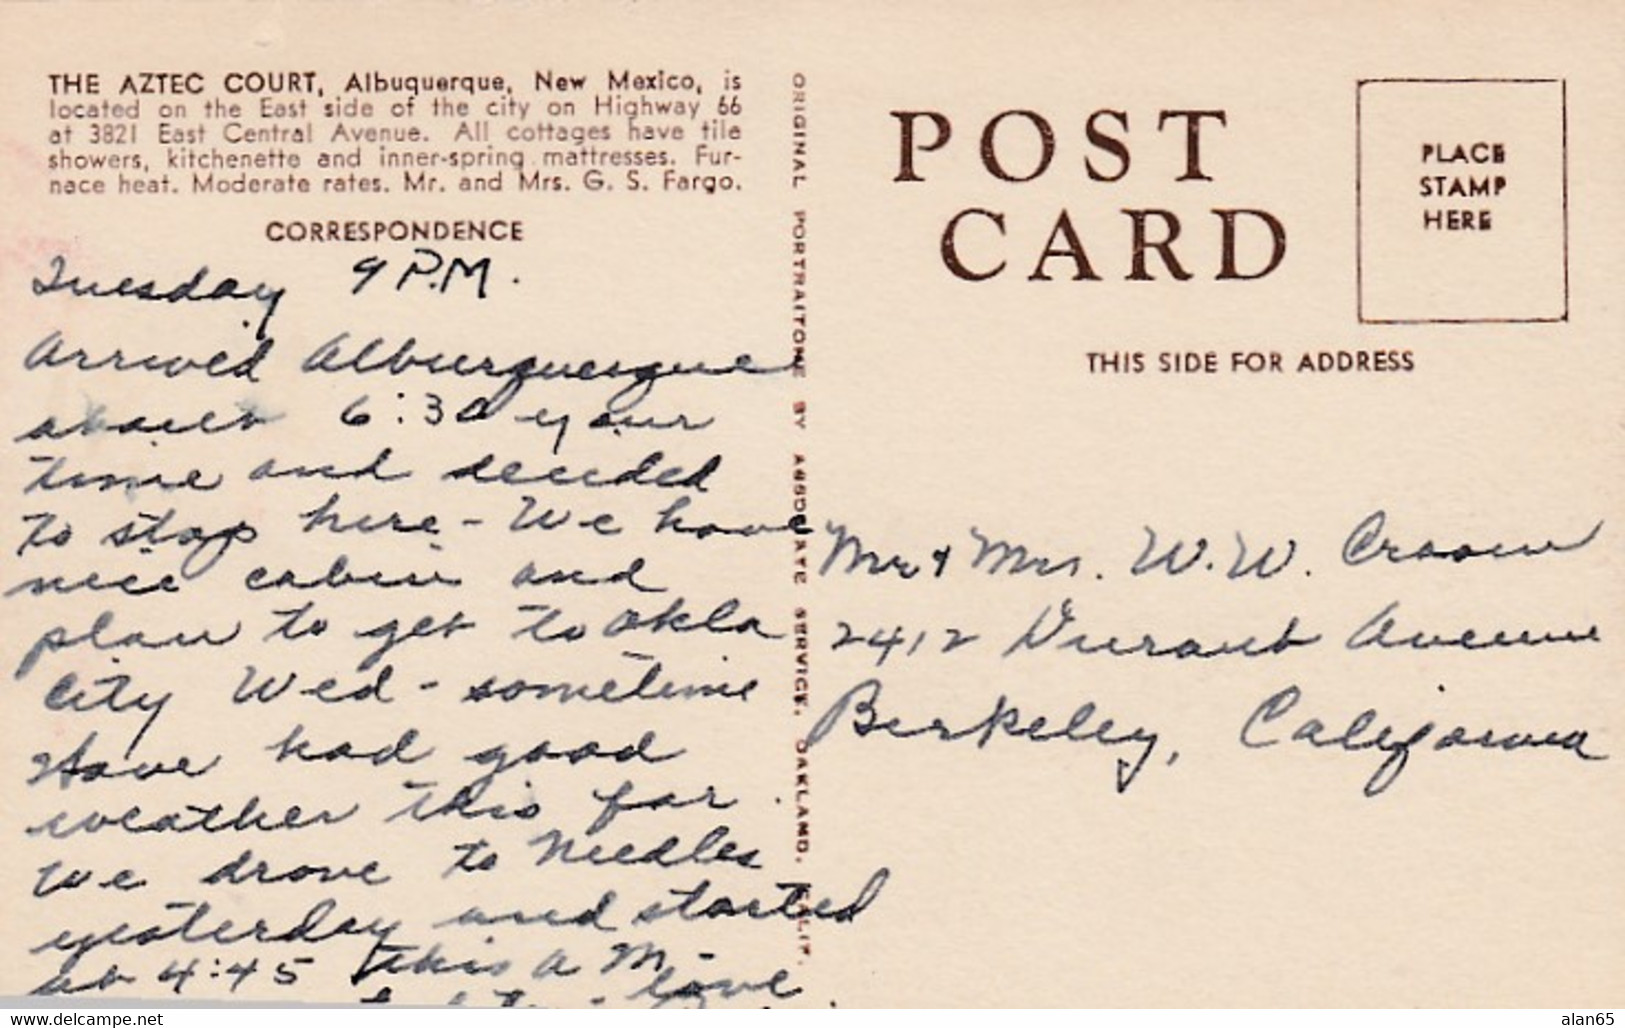 THE AZTEC COURT, Albuquerque, New Mexico, is
located on the East side of the city on Highway 66
at 3821 East Central Avenue. All cottages have tile
showers, kitchenette and inner-spring mattresses. Fur-
nace heat. Moderate rates. Mr. and Mrs. G. S. Fargo.
CORRESPONDENCE
Tuesday 9 P.M.
Arrived Alburquerque
about 6:30 your
time and decided
to stop here - We have
nice cabin and
plan to get to Okla
City Wed - sometime
Have had good
weather this far.
We drove to Needles
yesterday and started
at 4:45 this A M -
love
ORIGINAL PORTRAITONE BY ASSOCIATE SERVICE, OAKLAND, CALIF.
POST
CARD
PLACE
STAMP
HERE
THIS SIDE FOR ADDRESS
Mr & Mrs. W. W.
2412 Durant Avenue
Berkeley, California
delcampe.net
alan65